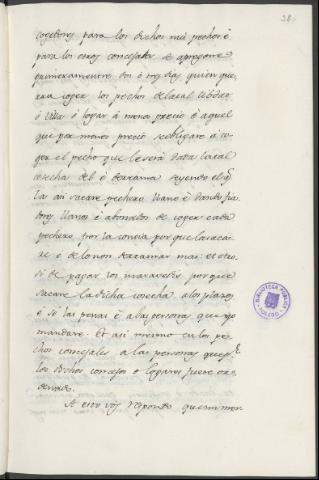 38
cogedores para los dichos mis pechos é
para los otros concejales se apregone
primeramente dos ó tres dias quien que
rra coger los pechos de la tal cibdad
ó villa ó logar á menor precio é aquel
que por menor precio se obligare á co
ger el pecho que le sera dada la tal
cosecha del é derrama seyendo el q
la asi sacare pechero llano é dando fia
dores llanos é abonados de coger cada
pechero por la contia por que la sacá
re é de lo non derramar mas: et otro
si de pagar los maravedis por que
sacare la dicha cosecha a los plazos
é so las penas é a las personas que yo
mandare. Et asi mesmo en los pe
chos concejales a las personas que por
los dichos concejos ó logares fuere or
denado.
A esto vos respondo que mi mer
BIBLIOTECA PUBLICA
TOLEDO